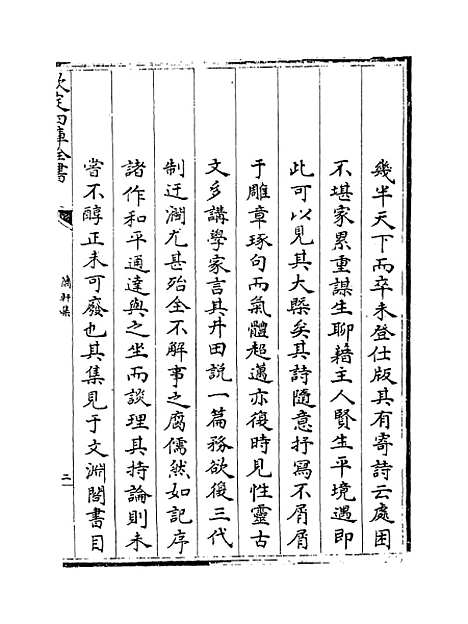 幾半天下而卒未登仕版其有寄詩云處困
不堪家累重謀生聊藉主人賢生平境遇即
此可以見其大槩矣其詩隨意抒寫不屑屑
于雕章琢句而氣體超邁亦復時見性靈古
文多講學家言其井田説一篇務欲後三代
制迂濶尤甚殆全不解事之腐儒然如記序
諸作和平通達與之坐而談理其持論則未
嘗不醇正未可廢也其集見于文淵閣書目
欽定四庫全書
蘭軒集
二